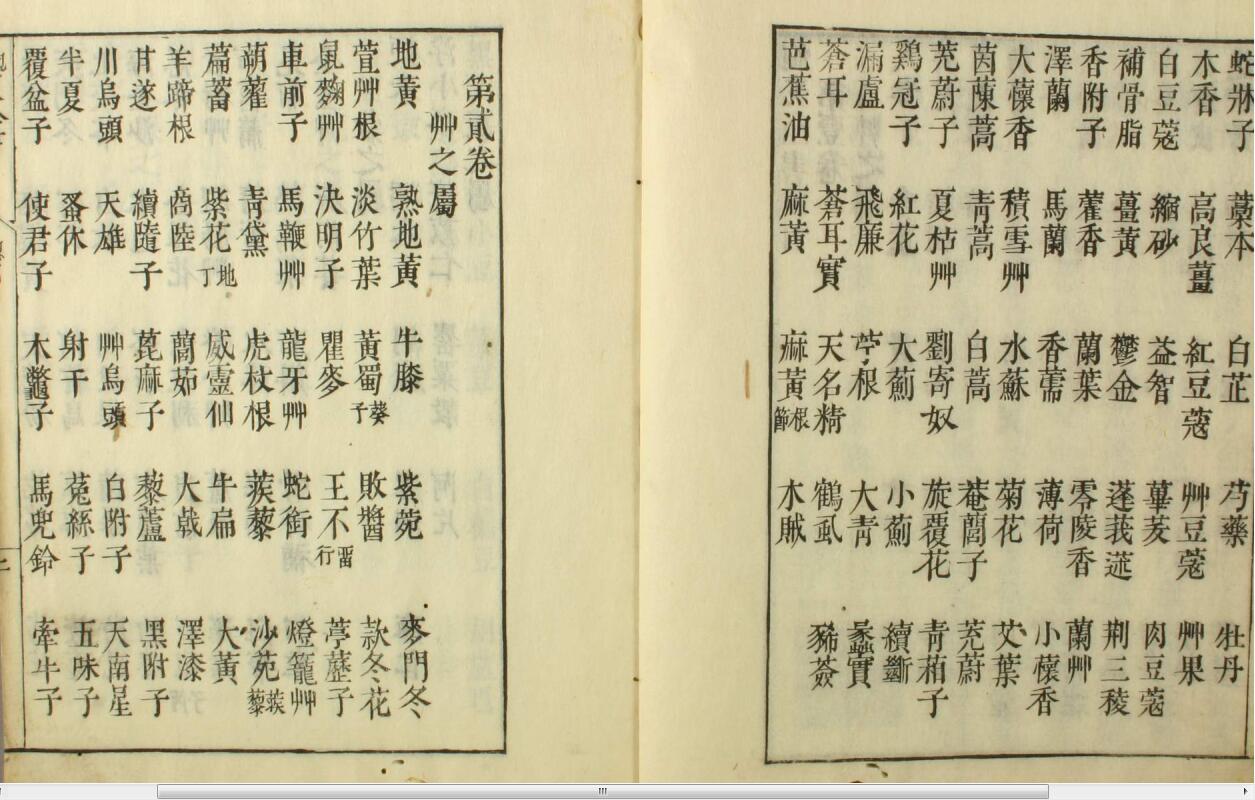 蛇牀子 藁本 白芷 芍藥 牡丹
木香 高良薑 紅豆蔻 艸豆蔻 艸果
白豆蔻 縮砂 益智 蓽茇 肉豆蔻
補骨脂 薑黃 鬱金 蓬莪蒁 荆三稜
香附子 藿香 蘭葉 零陵香 蘭艸
澤蘭 馬蘭 香薷 薄荷 小懷香
大懷香 積雪艸 水蘇 菊花 艾葉
茵蔯蒿 靑蒿 白蒿 菴䕡子 茺蔚
茺蔚子 夏枯艸 劉寄奴 旋覆花 靑葙子
鷄冠子 紅花 大薊 小薊 續斷
漏盧 飛廉 苧根 大靑 蠡實
蒼耳 蒼耳實 天名精 鶴虱 豨薟
芭蕉油 麻黃 麻黃根節 木賊
第貳卷
艸之屬
地黃 熟地黃 牛膝 紫菀 麥門冬
萱艸根 淡竹葉 黃蜀葵子 敗醬 款冬花
鼠麴艸 決明子 瞿麥 王不留行 葶藶子
車前子 馬鞭艸 龍牙艸 蛇銜 燈籠艸
蒴藋 靑黛 虎杖根 蒺藜 沙苑蒺藜
萹蓄 紫花地丁 威靈仙 牛扁 大黃
羊蹄根 商陸 藺茹 大戟 澤漆
甘遂 續隨子 萞麻子 藜蘆 黑附子
川烏頭 天雄 艸烏頭 白附子 天南星
半夏 蚤休 射干 菟絲子 五味子
覆盆子 使君子 木鼈子 馬兜鈴 牽牛子